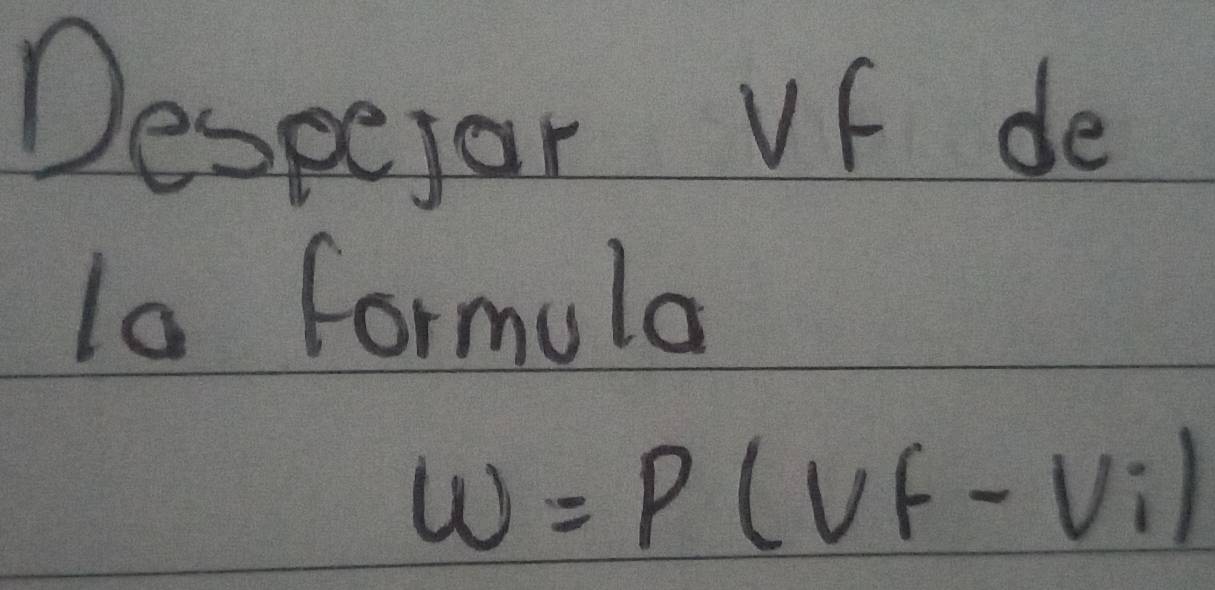 Despejar Vf de
la formula
W = P (Vf - Vi)